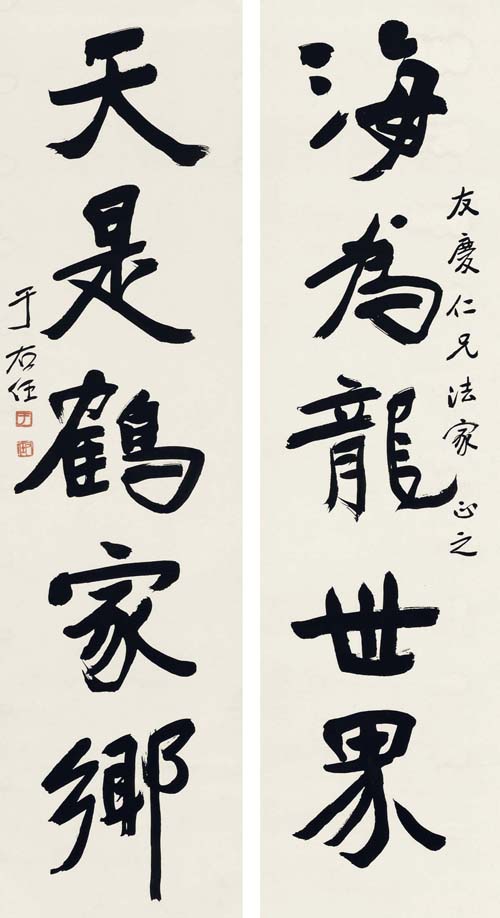 友慶仁兄法家 正之
海為龍世界
天是鶴家鄉
于右任